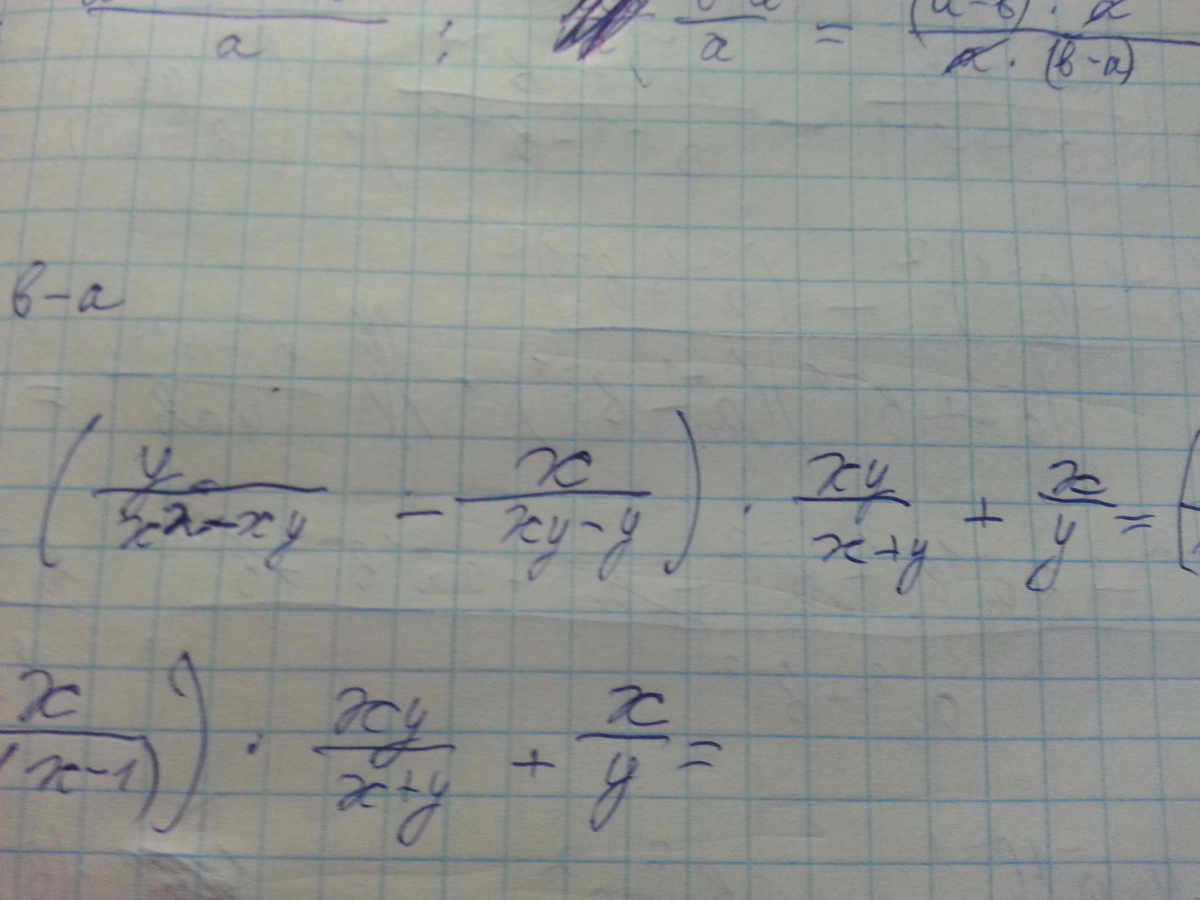 a : a = (a-b) · a / a · (b-a)
b-a
(y / x² - xy - x / xy - y) · xy / x+y + x / y = (
x / (x-1)) · xy / x+y + x / y =